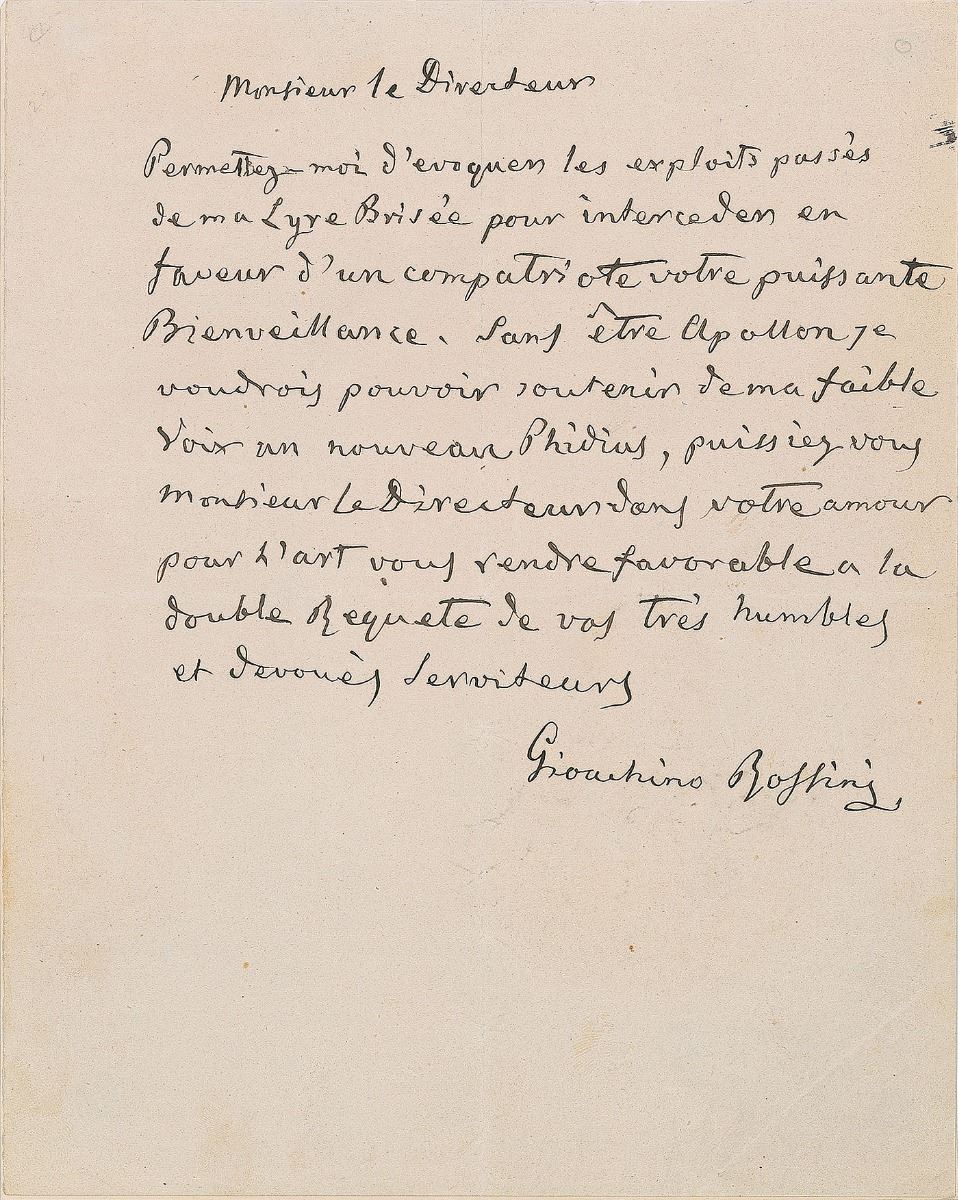 Monsieur le Directeur
Permettez-moi d'evoquer les exploits passès
de ma Lyre Brisée pour interceder en
faveur d'un compatriote votre puissante
Bienveillance. Sans être Apollon je
voudrois pouvoir soutenir de ma faible
Voix un nouveau Phidias, puissiez vous
Monsieur le Directeur dans votre amour
pour L'art vous rendre favorable a la
double Requete de vos très humbles
et devouès Serviteurs
Gioachino Rossini